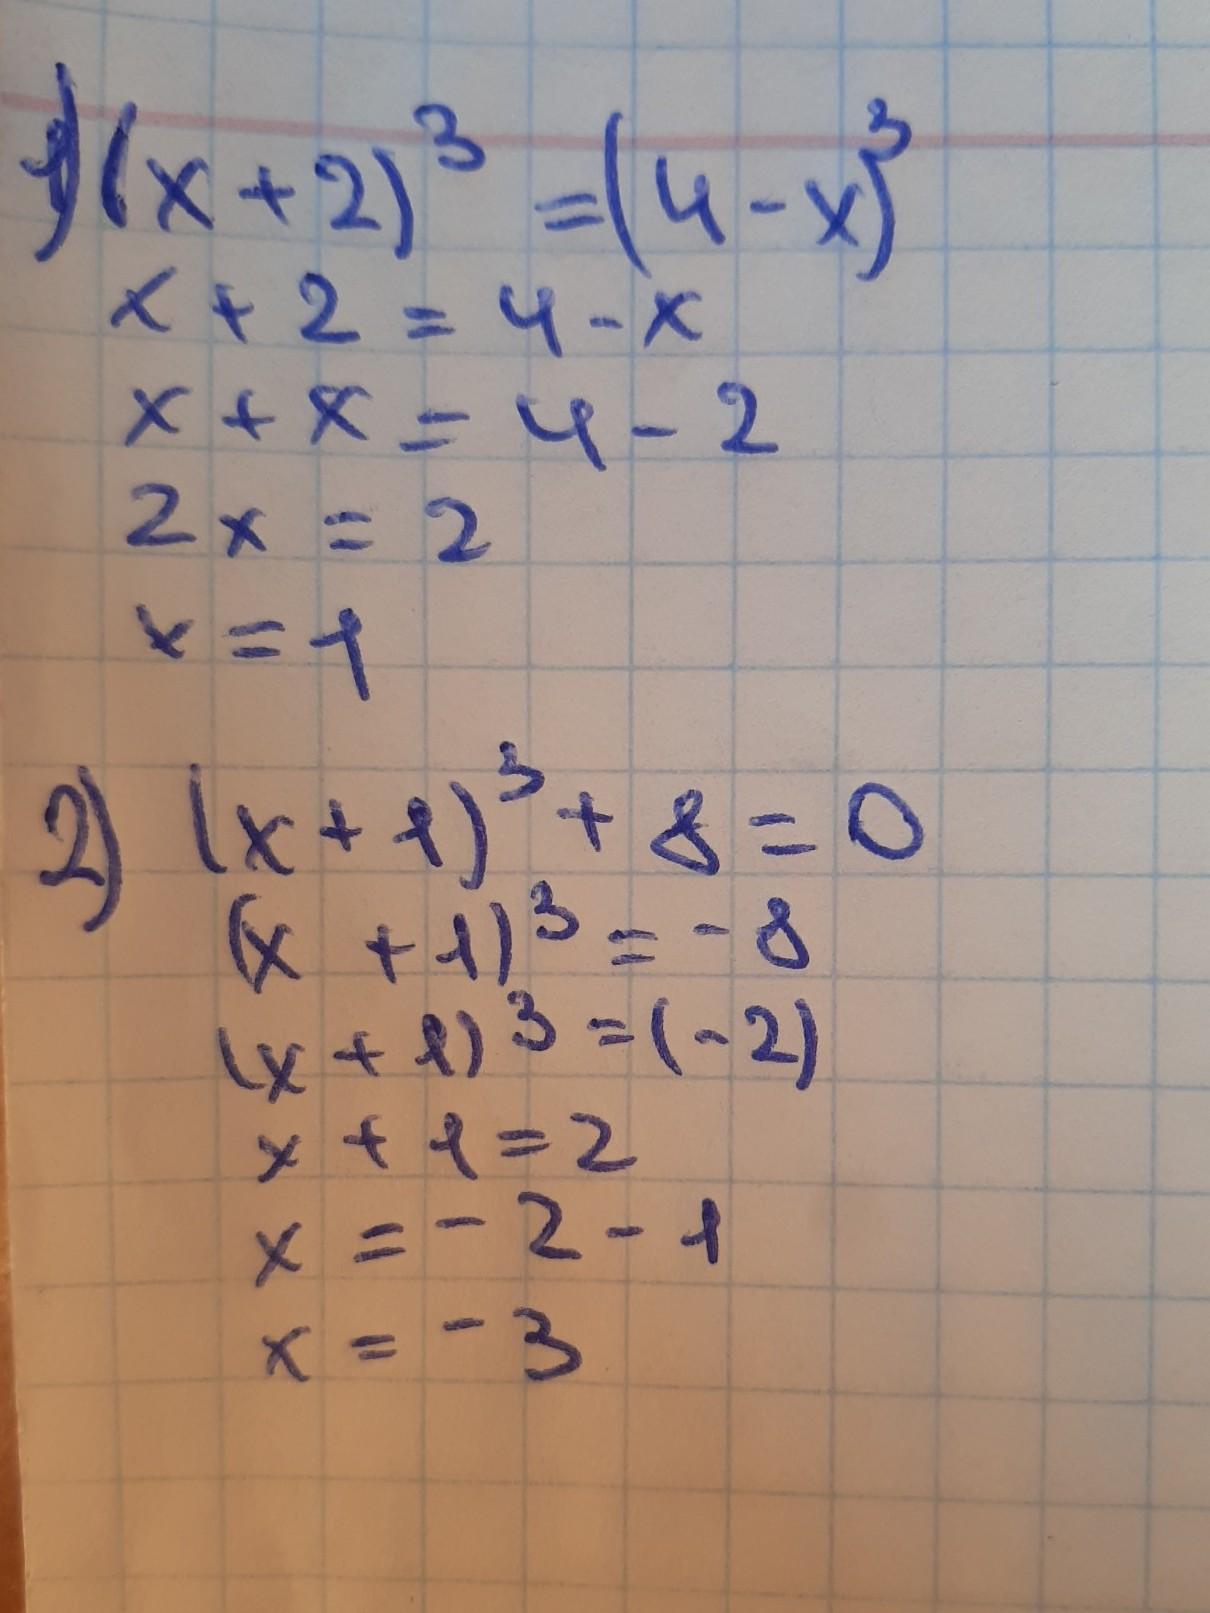 1) (x + 2)³ = (4 - x)³
x + 2 = 4 - x
x + x = 4 - 2
2x = 2
x = 1
2) (x + 1)³ + 8 = 0
(x + 1)³ = - 8
(x + 1)³ = (- 2)
x + 1 = 2
x = - 2 - 1
x = - 3